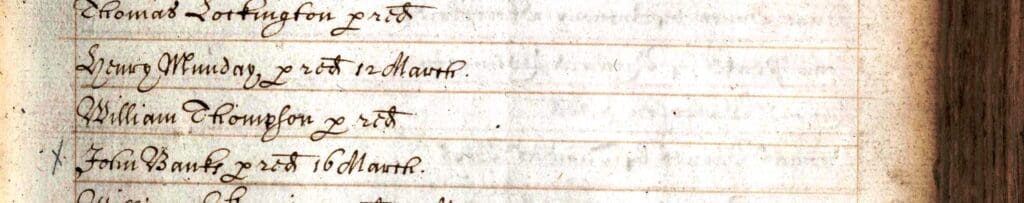 Thomas Lockington p red
Henry Munday, p red 12 March.
William Thompson p red
X John Banks p red 16 March.